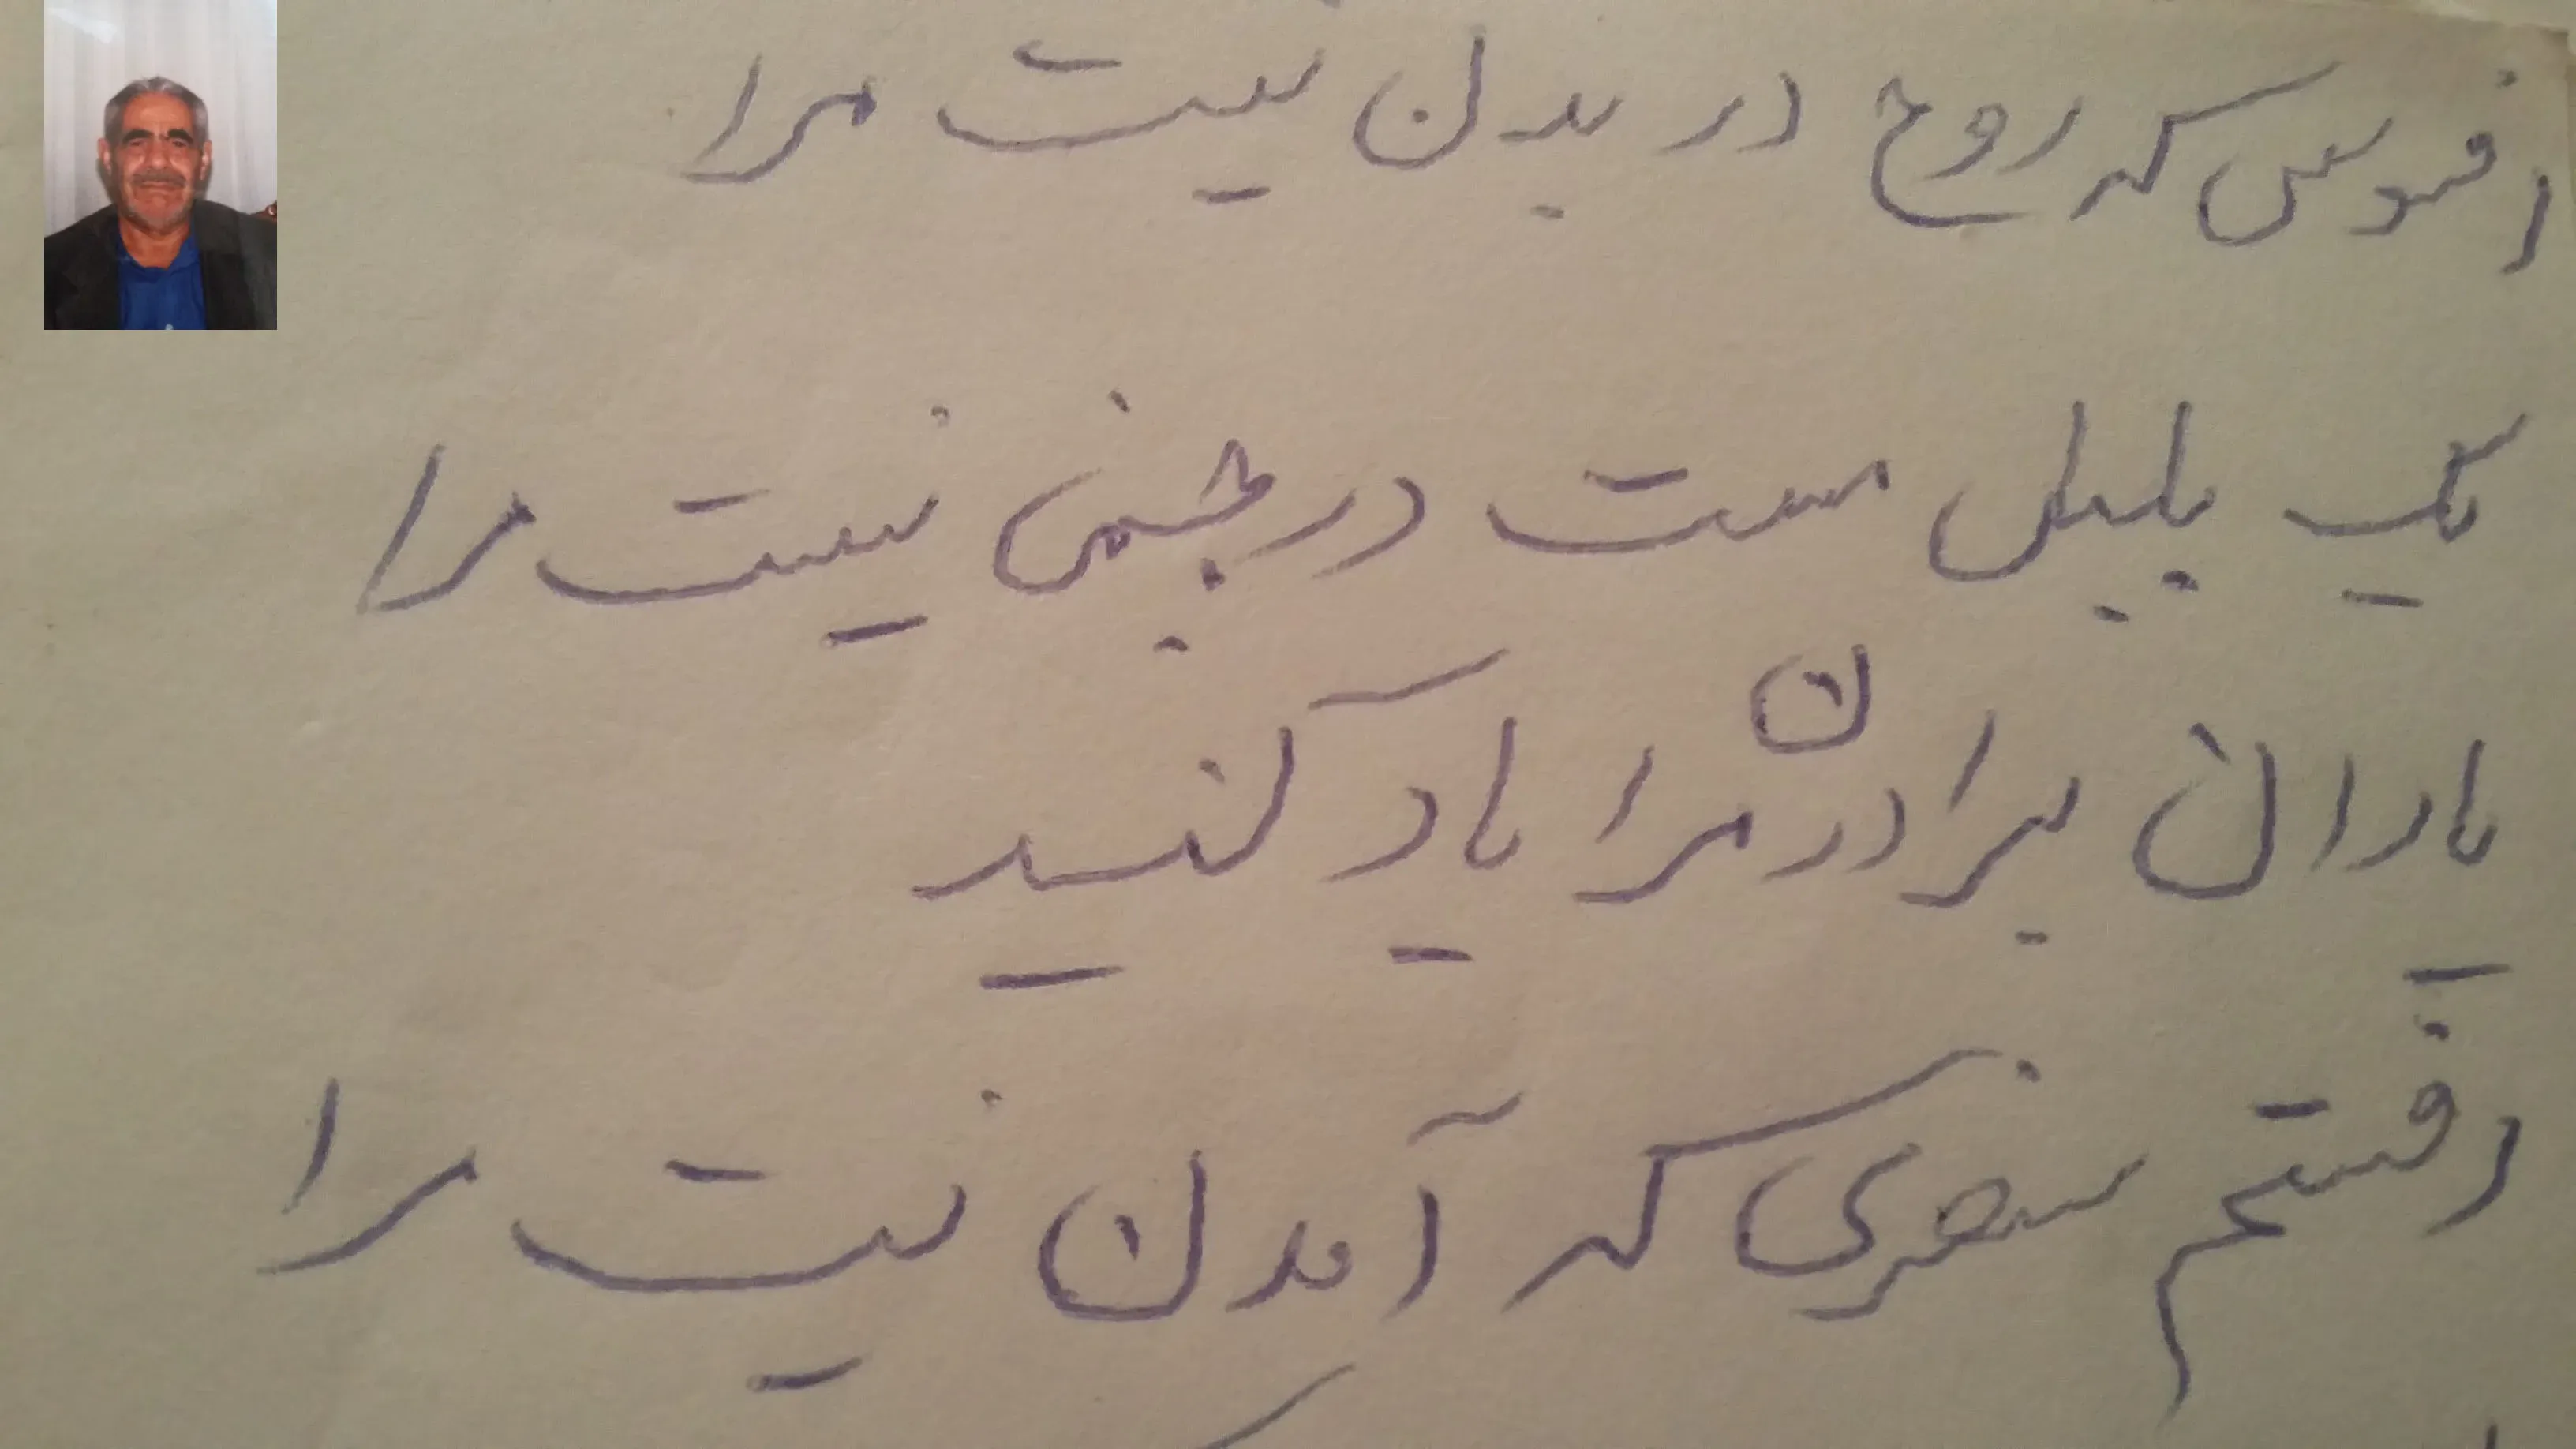 افسوس که روح در بدن نیست مرا
یک بلبل مست در چمن نیست مرا
یاران برادران مرا یاد کنید
رفتم سفری که آمدن نیست مرا